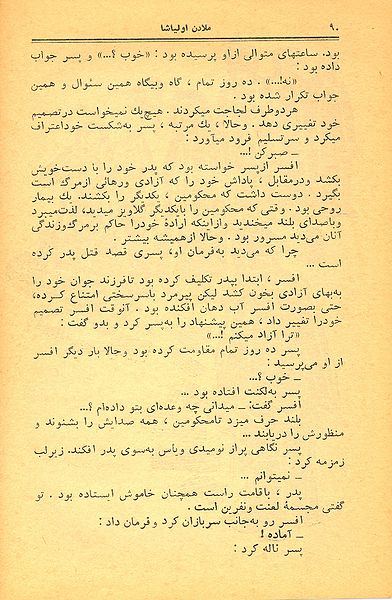 ۹۰
ملادن اولیاشا
بود. ساعتهای متوالی ازاو پرسیده بود : «خوب ؟...» و پسر جواب
داده بود :
«نه!...» . ده روز تمام ، گاه وبیگاه همین سئوال و همین
جواب تکرار شده بود .
هردوطرف لجاجت میکردند . هیچ‌یك نمیخواست درتصمیم
خود تغییری دهد . وحالا ، یك مرتبه ، پسر به‌شکست خوداعتراف
میکرد و سرتسلیم فرود میآورد :
ــ صبرکن !...
افسر ازپسر خواسته بود که پدر خود را با دست‌خویش
بکشد ودرمقابل ، پاداش خود را که آزادی ورهائی ازمرگ است
بگیرد . دوست داشت که محکومین ، یکدیگر را بکشند. یك بیمار
روحی بود . وقتی که محکومین را بایکدیگر گلاویز میدید، لذت‌میبرد
وباصدای بلند میخندید وازاینکه ارادۀ خودرا حاکم برمرگ‌وزندگی
آنان می‌دید مسرور بود . وحالا ازهمیشه بیشتر .
چرا که می‌دید به‌فرمان او، پسری قصد قتل پدر کرده
است ...
افسر ، ابتدا بپدر تکلیف کرده بود تافرزند جوان خود را
به‌بهای آزادی بخون کشد لیکن پیرمرد باسرسختی امتناع کرده،
حتی بصورت افسر آب دهان افکنده بود . آنوقت افسر تصمیم
خودرا تغییر داد ، همین پیشنهاد را به‌پسر کرد و بدو گفت :
«ترا آزاد میکنم !...»
پسر ده روز تمام مقاومت کرده بود وحالا بار دیگر افسر
از او می‌پرسید :
ــ خوب ؟...
پسر به‌لکنت افتاده بود ...
افسر گفت: ــ میدانی چه وعده‌ای بتو داده‌ام ؟...
بلند حرف میزد تامحکومین ، همه صدایش را بشنوند و
منظورش را دریابند ...
پسر نگاهی پراز نومیدی ویأس به‌سوی پدر افکند. زیرلب
زمزمه کرد :
ــ نمیتوانم ...
پدر ، باقامت راست همچنان خاموش ایستاده بود . تو
گفتی مجسمهٔ لعنت ونفرین است .
افسر رو به‌جانب سربازان کرد و فرمان داد :
ــ آماده !
پسر ناله کرد :